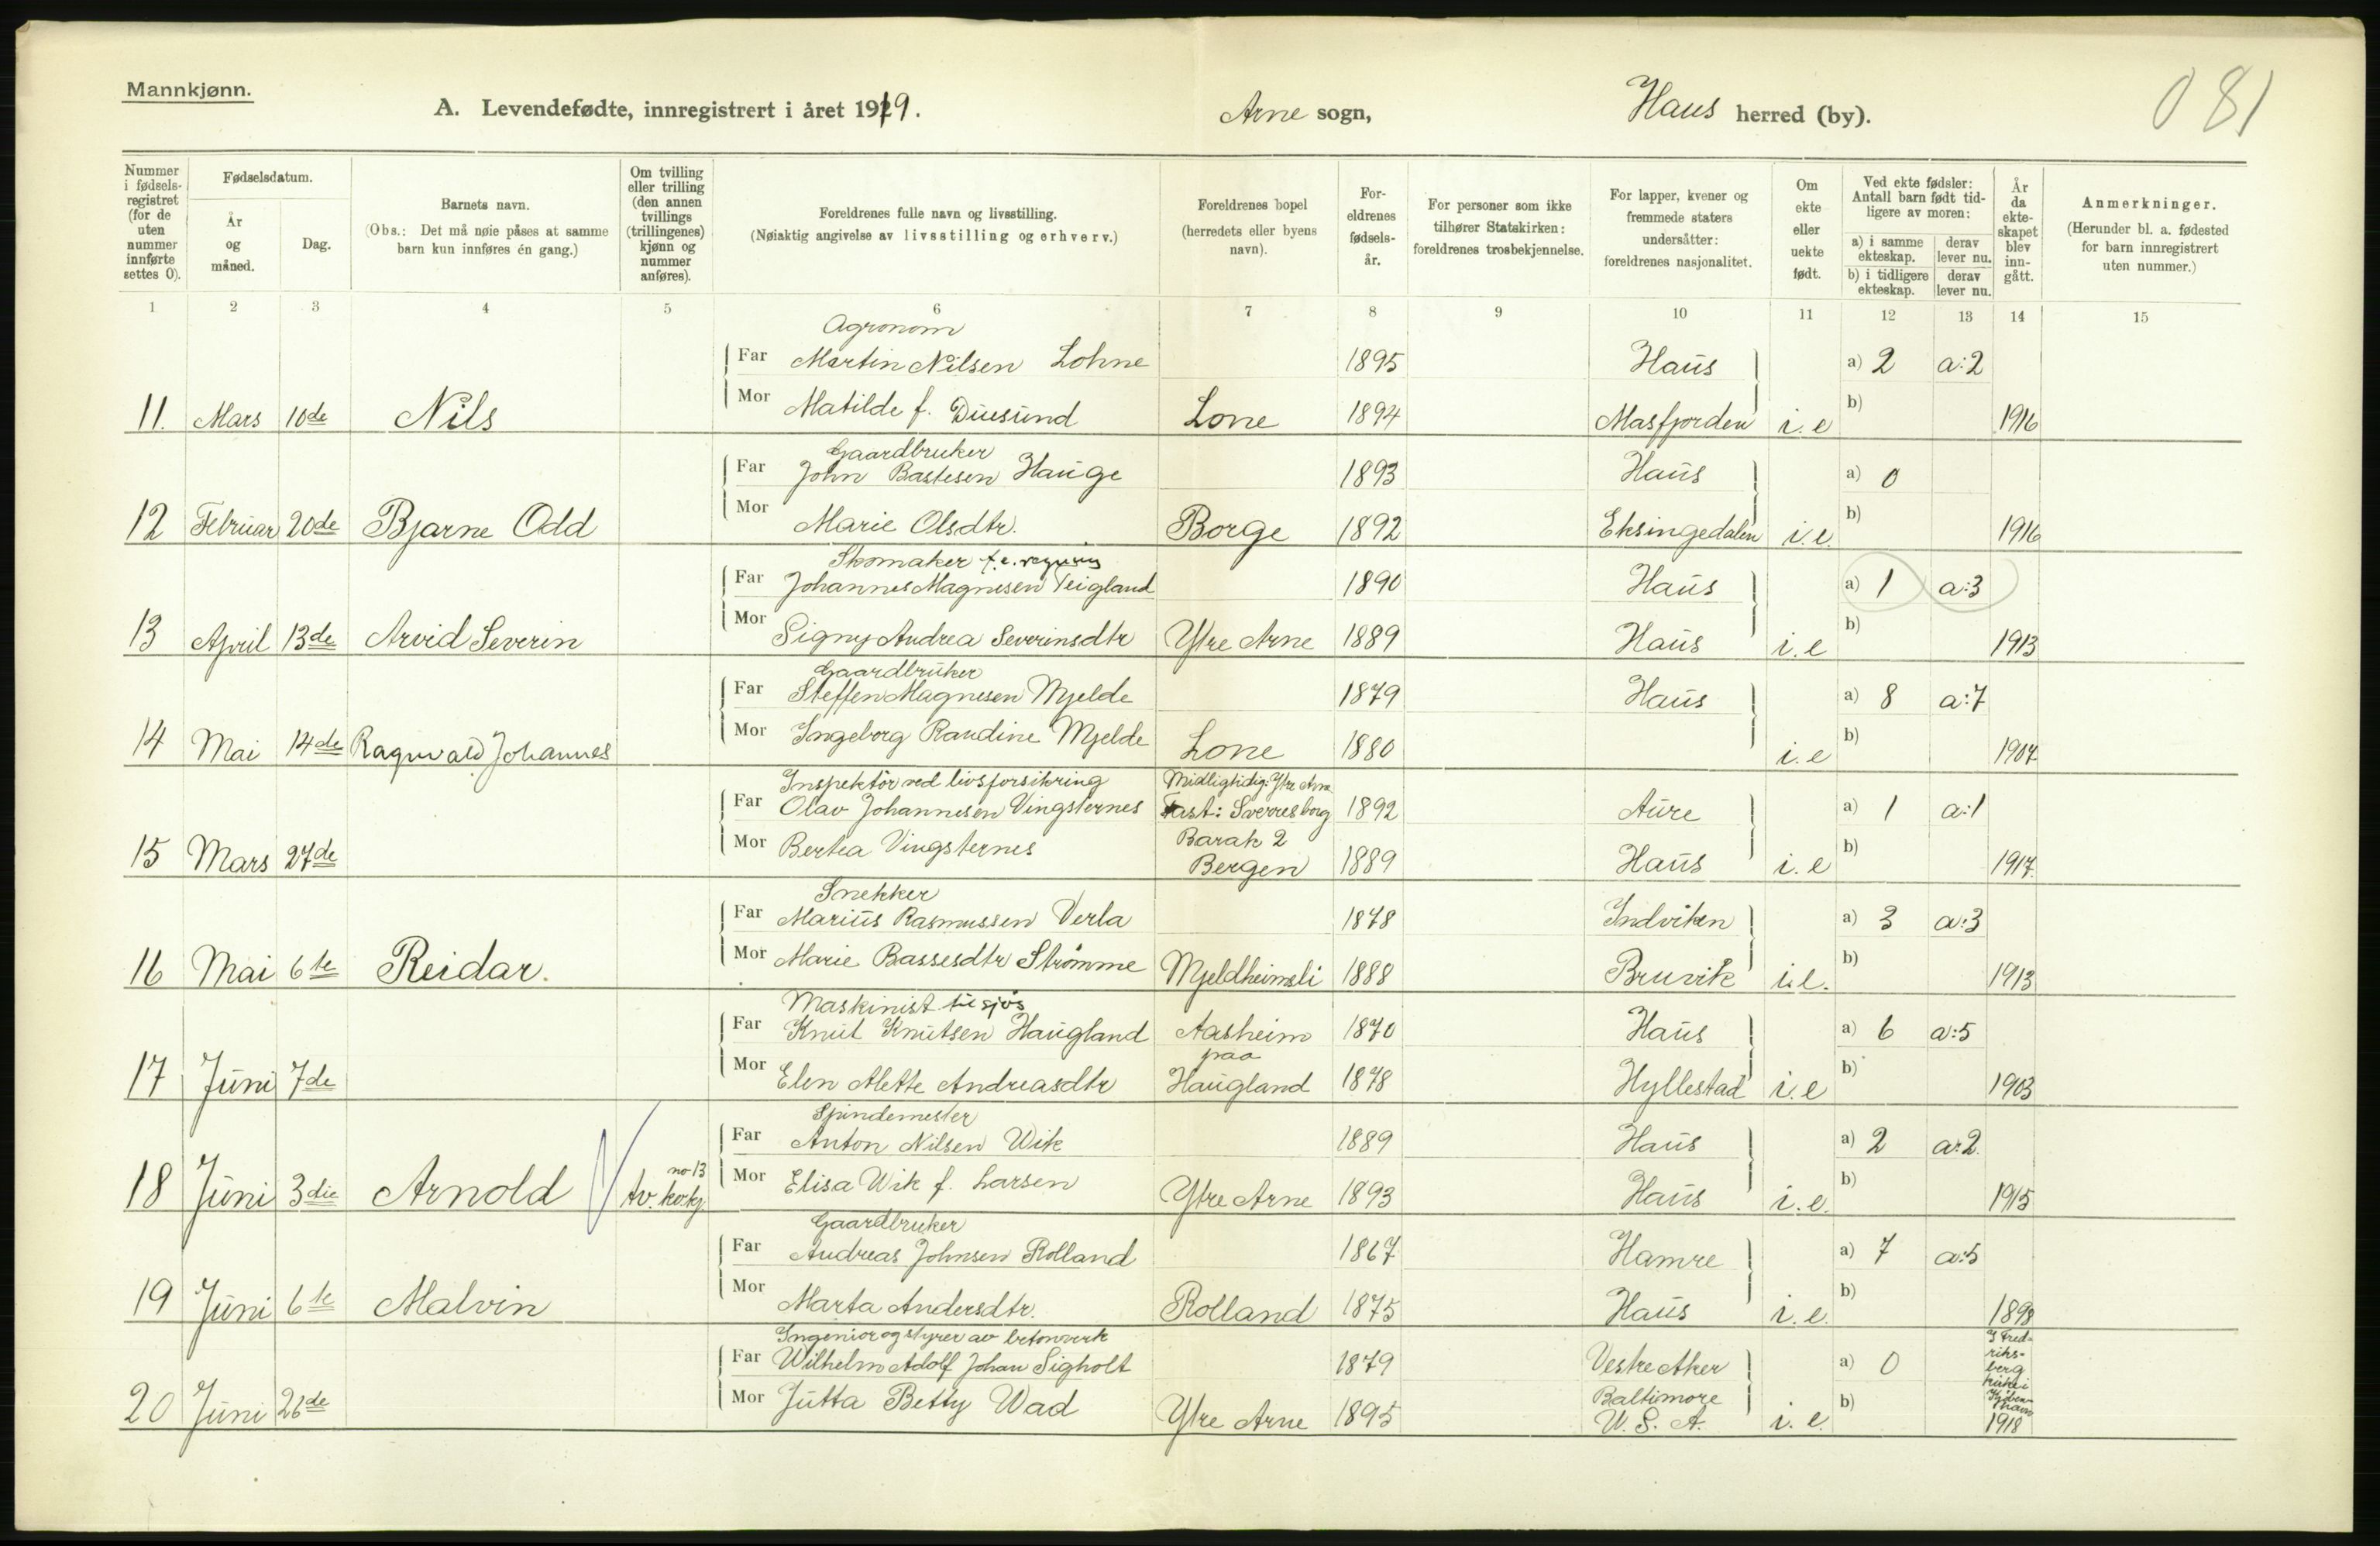 Mannkjønn.
A. Levendefødte, innregistrert i året 1919.
Arne sogn,
Haus herred (by).
081
Nummer i fødsels-registret (for de uten nummer innførte settes 0).
Fødselsdatum.
År og måned.
Dag.
Barnets navn.
(Obs.: Det må nøie påses at samme barn kun innføres én gang.)
Om tvilling eller trilling (den annen tvillings (trillingenes) kjønn og nummer anføres).
Foreldrenes fulle navn og livsstilling.
(Nøiaktig angivelse av livsstilling og erhverv.)
Foreldrenes bopel (herredets eller byens navn).
For-eldrenes fødsels-år.
For personer som ikke tilhører Statskirken: foreldrenes trosbekjennelse.
For lapper, kvener og fremmede staters undersåtter: foreldrenes nasjonalitet.
Om ekte eller uekte født.
Ved ekte fødsler: Antall barn født tid-ligere av moren:
a) i samme ekteskap.
derav lever nu.
b) i tidligere ekteskap.
derav lever nu.
År da ekte-skapet blev inn-gått.
Anmerkninger.
(Herunder bl. a. fødested for barn innregistrert uten nummer.)
1 2 3 4 5 6 7 8 9 10 11 12 13 14 15
Agronom
Far Martin Nilsen Lohne 1895 Haus a) 2 a:2
11. Mars 10de Nils Mor Matilde f. Duesund Lone 1894 Masfjorden i.e b) 1916
Gaardbruker
Far John Bastesen Hauge 1893 Haus a) 0
12 Februar 20de Bjarne Odd Mor Marie Olsdtr. Borge 1892 Eksingedalen i.e. b) 1916
Skomaker f.e. regning
Far Johannes Magnesen Teigland 1890 Haus a) 1 a:3
13 April 13de Arvid Severin Mor Signy Andrea Severinsdtr Ytre Arne 1889 Haus i.e b) 1913
Gaardbruker
Far Steffen Magnesen Mjelde 1879 Haus a) 8 a:7
14 Mai 14de Ragnvald Johannes Mor Ingeborg Randine Mjelde Lone 1880 i.e b) 1904
Inspektør ved livsforsikring Midligtidig: Ytre Arna
Far Olav Johannesen Vingsternes Fast: Sverresborg 1892 Aure a) 1 a:1
Barak 2
15 Mars 27de Mor Bertea Vingsternes Bergen 1889 Haus i.e b) 1917.
Snekker
Far Marius Rasmussen Verla 1878 Indviken a) 3 a:3
16 Mai 6te Reidar. Mor Marie Bassesdtr Strømme Mjeldheimsli 1888 Bruvik i.e. b) 1913
Maskinist til sjøs
Far Knut Knutsen Haugland Aasheim 1870 Haus a) 6 a:5
paa
17 Juni 7de Mor Elen Alette Andreasdtr Haugland 1878 Hyllestad i.e b) 1903
Spindemester
Far Anton Nilsen Wik 1889 Haus a) 2 a:2.
no 13
18 Juni 3die Arnold Tv. Mor Elisa Wik f. Larsen Ytre Arne 1893 Haus i.e. b) 1915
Gaardbruker
Far Andreas Johnsen Rolland 1867 Hamre a) 7 a:5
19 Juni 6te Malvin Mor Marta Andersdtr. Rolland 1875 Haus i.e. b) 1898
Ingeniør og styrer av betonverk
Far Wilhelm Adolf Johan Sigholt 1879 Vestre Aker a) 0
I Fred-
riks-
berg
kirke i
Kjøben-
havn
Baltimore
20 Juni 26de Mor Jutta Betty Wad Ytre Arne 1895 U. S. A. i.e. b) 1918